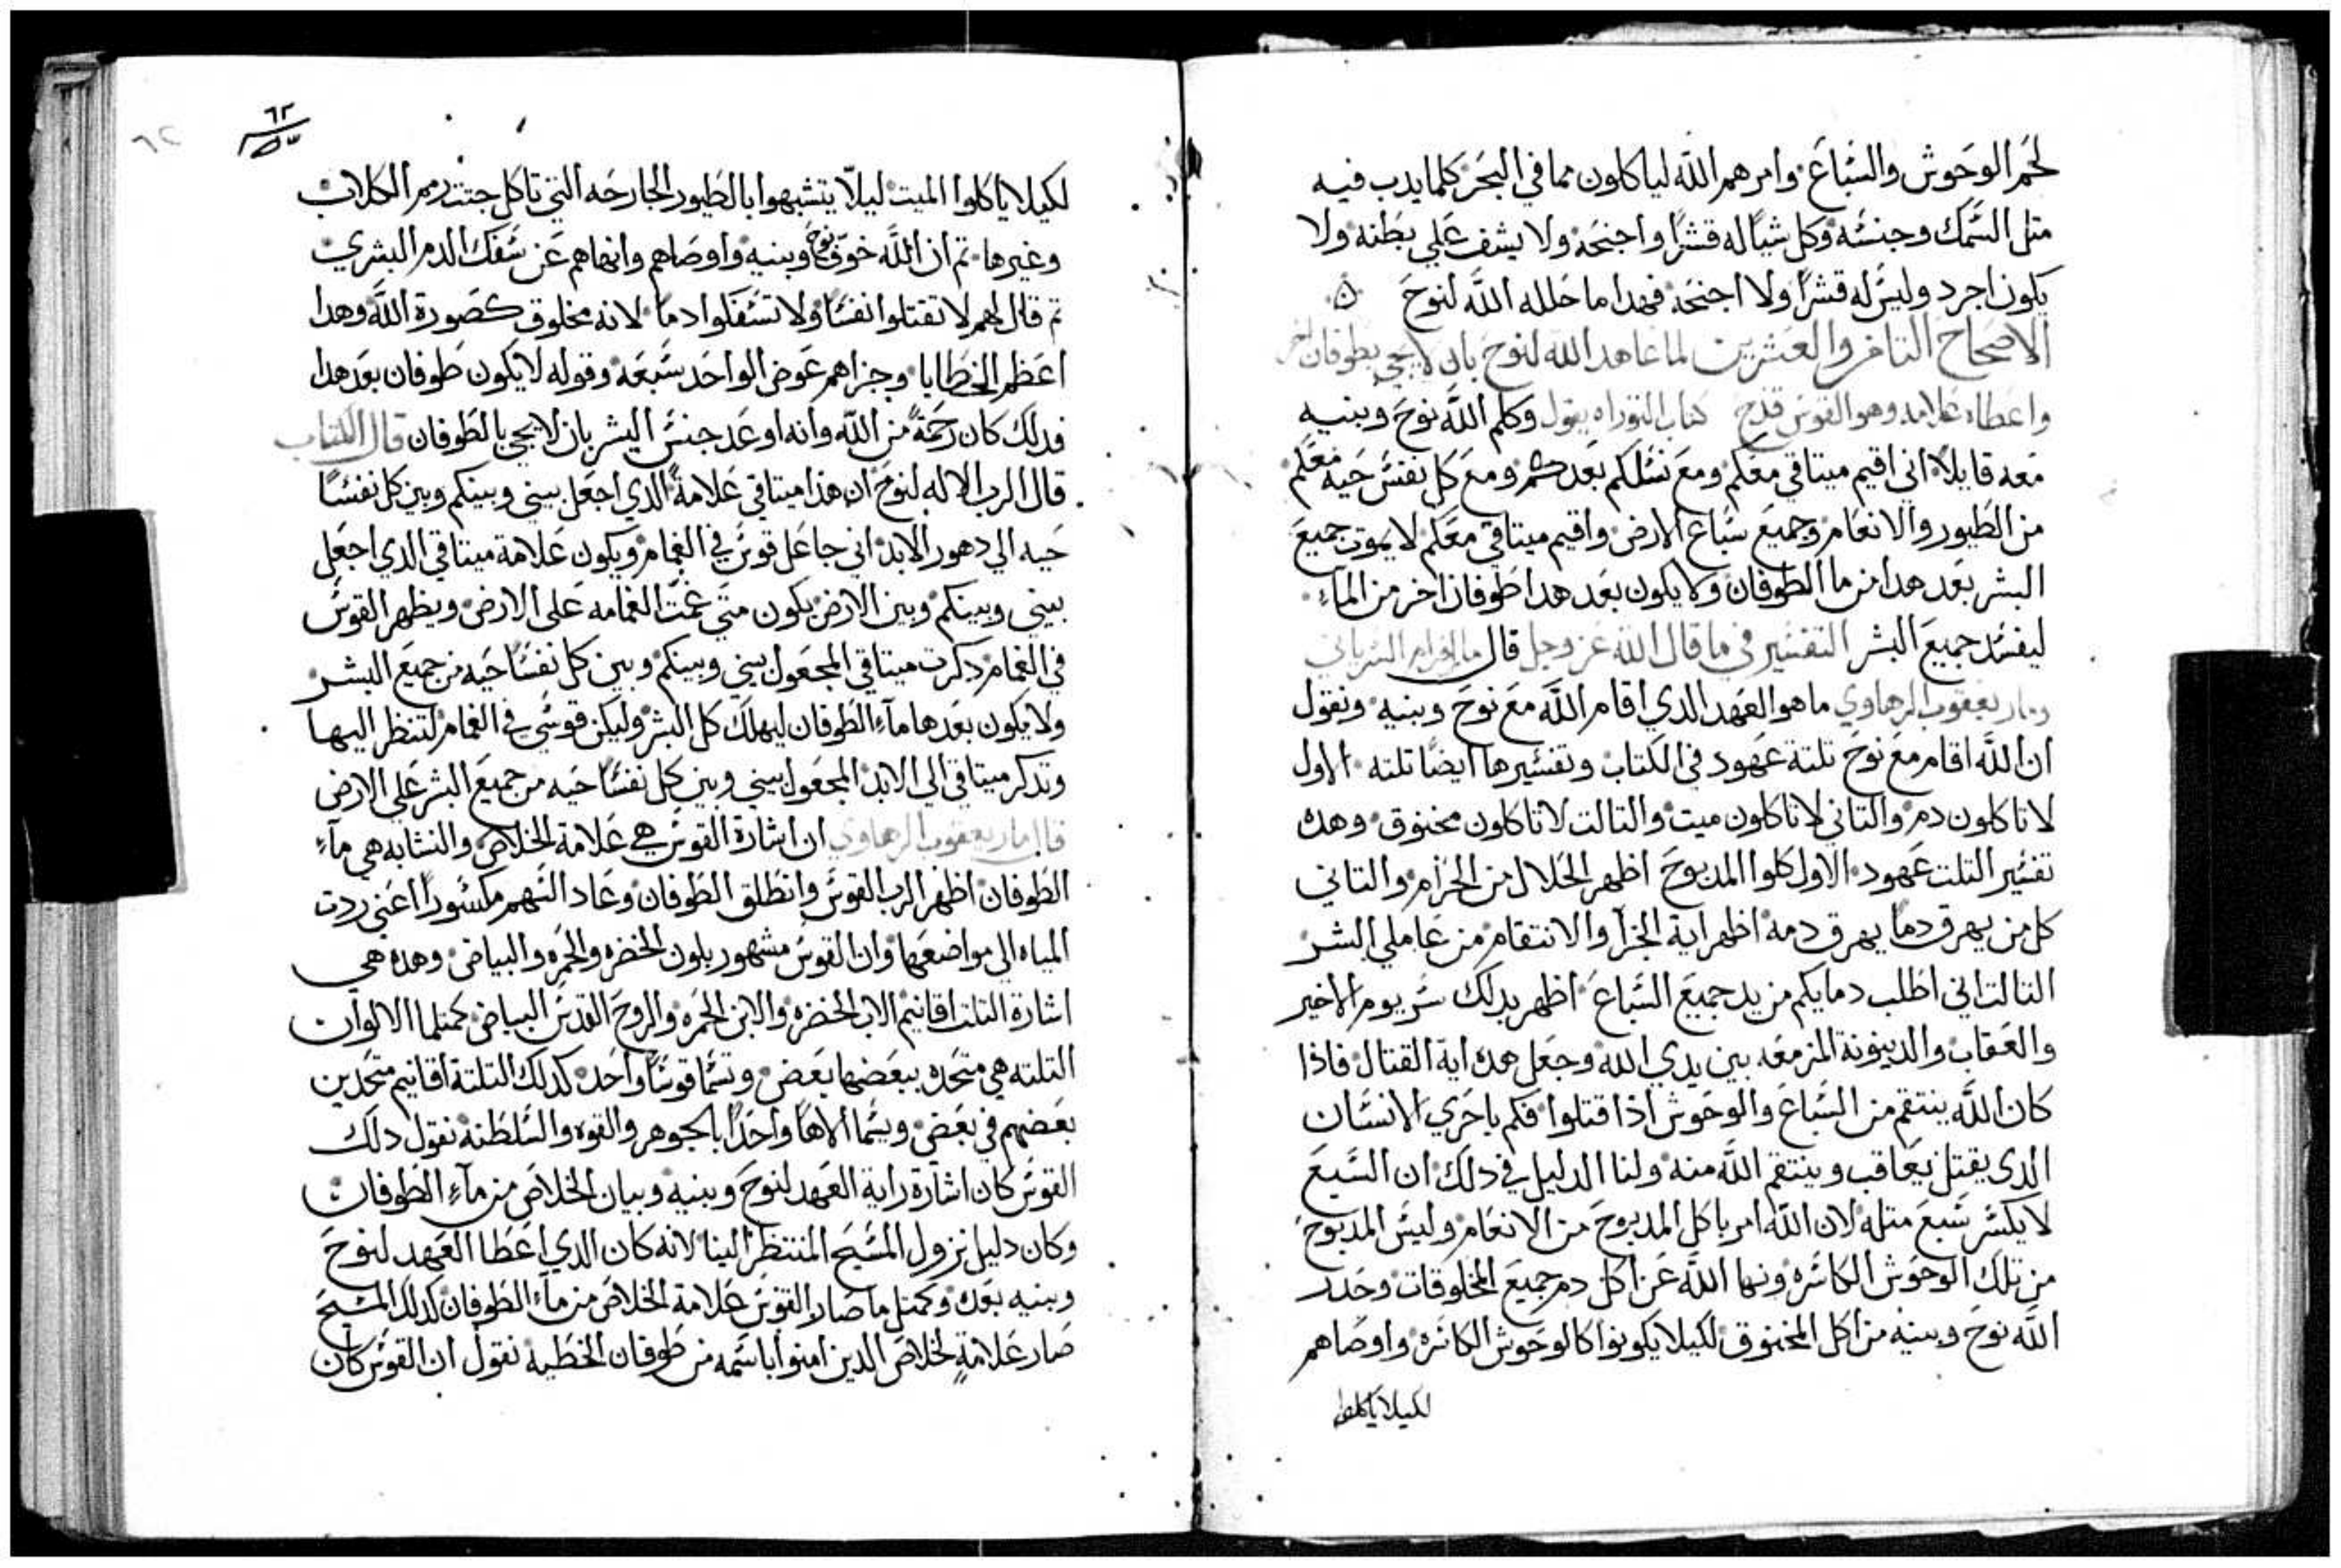 لحم الوحوش والسباع وامرهم الله لياكلون مما في البحر كلما يدب فيه
متل السمك وجنسه وكل شياً له قشراً واجنحه ولا يشف علي بطنه ولا
يكون اجرد وليس له قشراً ولا اجنحه فهدا ما حلله الله لنوح
الاصحاح التامن والعشرين لما عاهد الله لنوح بان لا يجي بطوفان اخر
واعطاه علامه وهو القوس قدح كتاب التوراه يقول وكلم الله نوح وبنيه
معه قايلاً اني اقيم ميتاقي معكم ومع نسلكم بعدكم ومع كل نفس حيه معكم
من الطيور والانعام وجميع سباع الارض واقيم ميتاقي معكم لا يموت جميع
البشر بعد هدا من ما الطوفان ولا يكون بعد هدا طوفان اخر من الماء
ليفسد جميع البشر التفسير في ما قال الله عز وجل قال مار افرام السرياني
ومار يعقوب الرهاوي ما هو العهد الدي اقام الله مع نوح وبنيه ونقول
ان الله اقام مع نوح تلتة عهود في الكتاب وتفسيرها ايضاً تلته الاول
لا تاكلون دم والتاني لا تاكلون ميت والتالت لا تاكلون مخنوق وهده
تفسير التلت عهود الاول كلوا المدبوح اظهر الحلال من الحرام والتاني
كل من يهرق دماً يهرق دمه اظهر اية الجزا والانتقام من عاملي الشر
التالت اني اطلب دمايكم من يد جميع السباع اظهر بدلك سر يوم الاخير
والعقاب والدينونة المزمعه بين يدي الله وجعل هده اية القتال فادا
كان الله ينتقم من السباع والوحوش ادا قتلوا فكم باحري الانسان
الدي يقتل يعاقب وينتقم الله منه ولنا الدليل في دلك ان السبع
لا يكسر سبع متله لان الله امر باكل المدبوح من الانعام وليس المدبوح
من تلك الوحوش الكاسره ونها الله عن اكل دم جميع المخلوقات وحدد
الله نوح وبنيه من اكل المخنوق لكيلا يكونوا كالوحوش الكاسره واوصاهم
لكيلا ياكلوا
٦٢
لكيلا ياكلوا الميت ليلاّ يتشبهوا بالطيور الجارحه التي تاكل جتت رمم الكلاب
وغيرها تم ان الله خوّف نوح وبنيه واوصاهم وانهاهم عن سفك الدم البشري
تم قال لهم لا تقتلوا نفساً ولا تسفكوا دماً لانه مخلوق كصورة الله وهدا
اعظم الخطايا وجزاهم عوض الواحد سبعه وقوله لا يكون طوفان بعد هدا
فدلك كان رحمةً من الله وانه اوعد جنس البشر بان لا يجي بالطوفان قال الكتاب
قال الرب الاله لنوح ان هدا ميتاقي علامةً الدي اجعل بيني وبينكم وبين كل نفساً
حيه الي دهور الابد اني جاعل قوس في الغمام ويكون علامة ميتاقي الدي اجعل
بيني وبينكم وبين الارض يكون متى غمت الغمامه على الارض ويظهر القوس
في الغمام دكرت ميتاقي المجعول بيني وبينكم وبين كل نفساً حيه من جميع البشر
ولا يكون بعدها ماء الطوفان ليهلك كل البشر وليكن قوسي في الغمام لتنظر اليها
وتدكر ميتاقي الي الابد المجعول بيني وبين كل نفساً حيه من جميع البشر علي الارض
قال مار يعقوب الرهاوي ان اشارة القوس هي علامة الخلاص والنشابه هي ماء
الطوفان اظهر الرب القوس وانطلق الطوفان وعاد السهم مكسوراً اعني ردت
المياه الي مواضعها وان القوس مشهور بلون الخضره والحمره والبياض وهده هي
اشارة التلت اقانيم الاب الخضره والابن الحمره والروح القدس البياض كمتلما الالوان
التلته هي متحده ببعضها بعض وتسما قوساً واحد كدلك التلتة اقانيم متحدين
بعضهم في بعض ويسما الاهاً واحداً بالجوهر والقوه والسلطنه نقول دلك
القوس كان اشارة راية العهد لنوح وبنيه وبيان الخلاص من ماء الطوفان
وكان دليل نزول المسيح المنتظر الينا لانه كان الدي اعطا العهد لنوح
وبنيه بعده وكمتل ما صار القوس علامة الخلاص من ماء الطوفان كدلك المسيح
صار علامةٍ لخلاص الدين امنوا باسمه من طوفان الخطيه نقول ان القوس كان